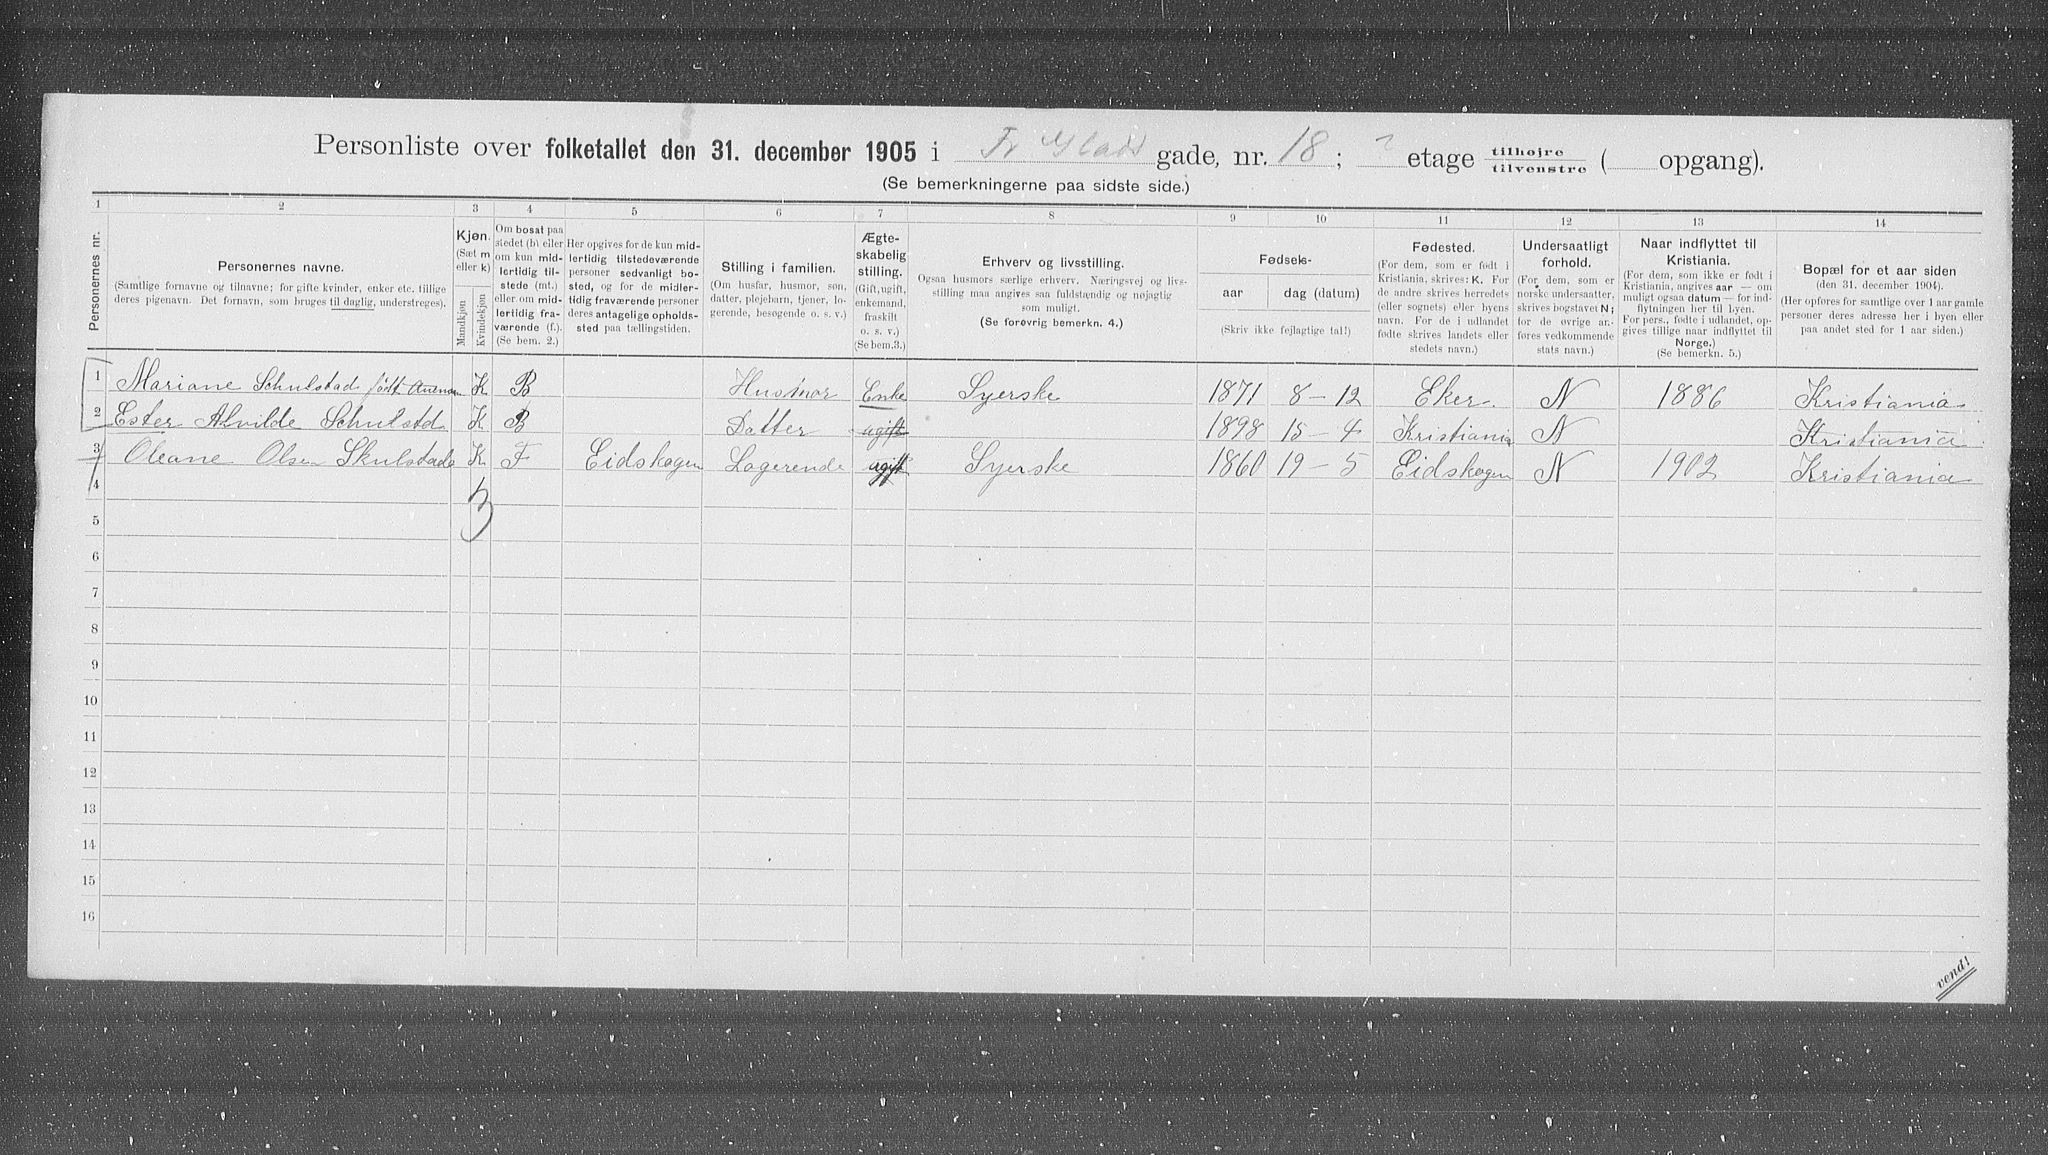 Personliste over folketallet den 31. december 1905 i Fr Glads gade, nr. 18; etage tilhøjre tilvenstre ( opgang).
(Se bemerkningerne paa sidste side.)
1 2 3 4 5 6 7 8 9 10 11 12 13 14
Personernes nr.
Personernes navne.
(Samtlige fornavne og tilnavne; for gifte kvinder, enker etc. tillige
deres pigenavn. Det fornavn, som bruges til daglig, understreges).
Kjøn.
(Sæt m
eller k)
Mandkjøn
Kvindekjøn
Om bosat paa
stedet (b) eller
om kun mid-
lertidig til-
stede (mt.)
eller om mid-
lertidig fra-
værende (f.).
(Se bem. 2.)
Her opgives for de kun mid-
lertidig tilstedeværende
personer sedvanligt bo-
sted, og for de midler-
tidig fraværende personer
deres antagelige opholds-
sted paa tællingstiden.
Stilling i familien.
(Om husfar, husmor, søn,
datter, plejebarn, tjener, lo-
gerende, besøgende o. s. v.)
Ægte-
skabelig
stilling.
(Gift, ugift,
enkemand,
fraskilt
o. s. v.)
(Se bem.3.)
Erhverv og livsstilling.
Ogsaa husmors særlige erhverv. Næringsvej og livs-
stilling maa angives saa fuldstændig og nøjagtig
som muligt.
(Se forøvrig bemerkn. 4.)
Fødsels-
aar dag (datum)
(Skriv ikke fejlagtige tal!)
Fødested.
(For dem, som er født i
Kristiania, skrives: K. For
de andre skrives herredets
(eller sognets) eller byens
navn. For de i udlandet
fødte skrives landets eller
stedets navn.)
Undersaatligt
forhold.
(For dem, som er
norske undersaatter,
skrives bogstavet N;
for de øvrige an-
føres vedkommende
stats navn.)
Naar indflyttet til
Kristiania.
(For dem, som ikke er født i
Kristiania, angives aar — om
muligt ogsaa datum — for ind-
flytningen her til byen.
For pers., fødte i udlandet, op-
gives tillige naar indflyttet til
Norge.)
(Se bemerkn. 5.)
Bopæl for et aar siden
(den 31. december 1904).
(Her opføres for samtlige over 1 aar gamle
personer deres adresse her i byen eller
paa andet sted for 1 aar siden.)
1 Mariane Schulstad født K B Husmor Enke Syerske 1871 8-12 Eker. N 1886 Kristiania
2 Ester Alvilde Schulstd K B Datter ugift 1898 15-4 Kristiania N Kristiania
3 Oleane Olsen Skulstad K F Eidskogen Logerende ugift Syerske 1860 19-5 Eidskogen N 1902 Kristiania
4 3
5
6
7
8
9
10
11
12
13
14
15
16
vend!